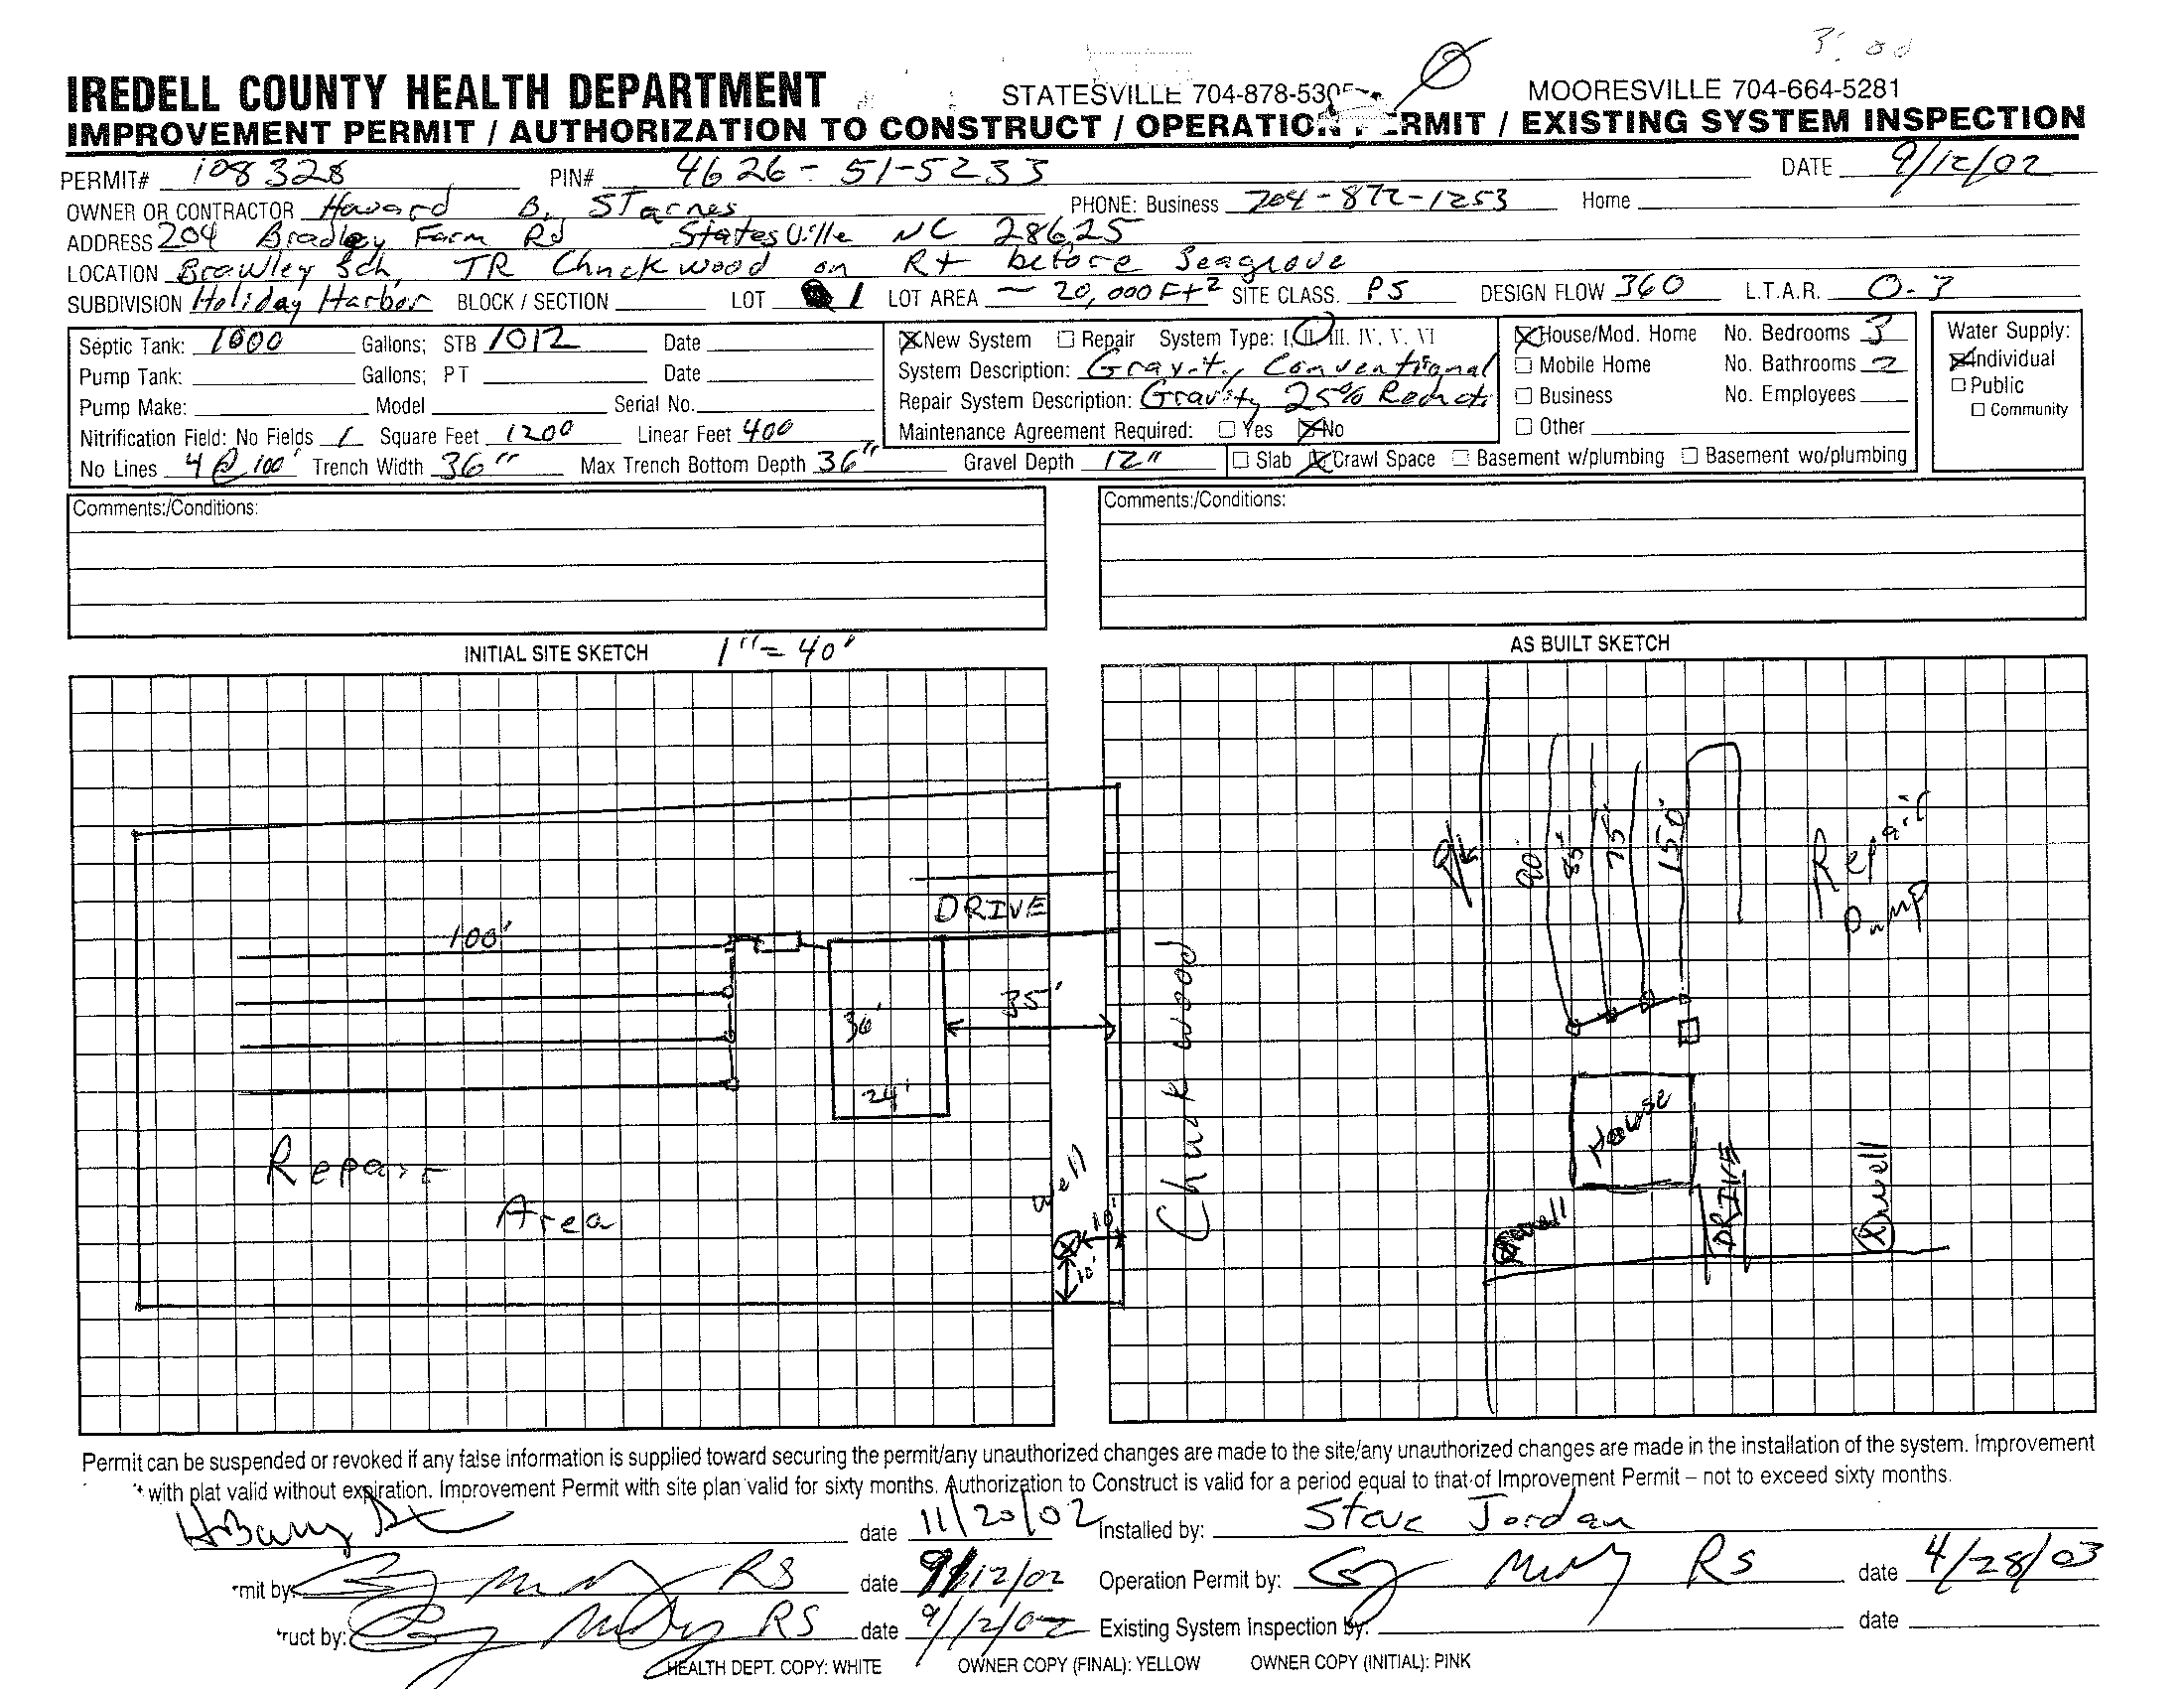 IREDELL COUNTY HEALTH DEPARTMENT STATESVILLE 704-878-530 MOORESVILLE 704-664-5281
IMPROVEMENT PERMIT / AUTHORIZATION TO CONSTRUCT / OPERATION PERMIT / EXISTING SYSTEM INSPECTION
PERMIT# 108328 PIN# 4626-51-5233 DATE 9/12/02
OWNER OR CONTRACTOR Howard B. Starnes PHONE: Business 704-872-1253 Home
ADDRESS 204 Bradley Farm Rd Statesville NC 28625
LOCATION Brawley Sch, TR Chuckwood on Rt before Seagrove
SUBDIVISION Holiday Harbor BLOCK / SECTION LOT 1 LOT AREA ~ 20,000 Ft² SITE CLASS. PS DESIGN FLOW 360 L.T.A.R. 0.3
Septic Tank: 1000 Gallons; STB 1012 Date
Pump Tank: Gallons; PT Date
Pump Make: Model Serial No.
Nitrification Field: No Fields 1 Square Feet 1200 Linear Feet 400
No Lines 4 @ 100' Trench Width 36" Max Trench Bottom Depth 36" Gravel Depth 12"
☒ New System ☐ Repair System Type: I, II, III, IV, V, VI
System Description: Gravity Conventional
Repair System Description: Gravity 25% Reducti
Maintenance Agreement Required: ☐ Yes ☒ No
☒ House/Mod. Home No. Bedrooms 3
☐ Mobile Home No. Bathrooms 2
☐ Business No. Employees
☐ Other
☐ Slab ☒ Crawl Space ☐ Basement w/plumbing ☐ Basement wo/plumbing
Water Supply:
☒ Individual
☐ Public
☐ Community
Comments:/Conditions:
Comments:/Conditions:
INITIAL SITE SKETCH 1" = 40'
AS BUILT SKETCH
100'
DRIVE
35'
36'
24'
Repair
Area
well
10'
10'
Chuckwood
90'
85'
75'
150'
Repair
Pump
House
DRIVE
well
well
Permit can be suspended or revoked if any false information is supplied toward securing the permit/any unauthorized changes are made to the site/any unauthorized changes are made in the installation of the system. Improvement
with plat valid without expiration. Improvement Permit with site plan valid for sixty months. Authorization to Construct is valid for a period equal to that of Improvement Permit – not to exceed sixty months.
date 11/20/02 Installed by: Steve Jordan
mit by: RS date 9/12/02 Operation Permit by: RS date 4/28/03
ruct by: RS date 9/12/02 Existing System Inspection by: date
HEALTH DEPT. COPY: WHITE OWNER COPY (FINAL): YELLOW OWNER COPY (INITIAL): PINK